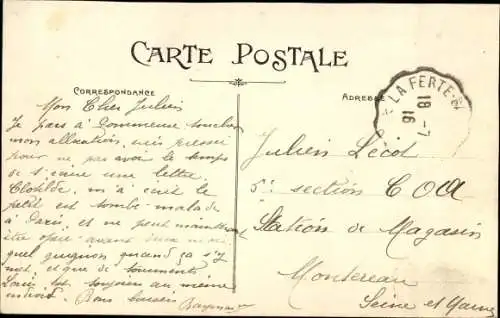 CARTE POSTALE
CORRESPONDANCE
Mon Cher Julien
Je pars à Pommeuse toucher
mon allocation, suis pressé
pour ne pas avoir le temps
de s' une lettre
Clotilde, m'a écrit le
petit est tombé malade
à Paris, et ne peut maintenant
être opéré avant deux mois
quel guignon quand ça s'y
met, et que de tourments
Louis est toujours au même
endroit. Bons baisers
ADRESSE
LA FERTE
18 - 7
16
Julien Lécot
5e section COA
Station de Magasin
Montereau
Seine et Marne